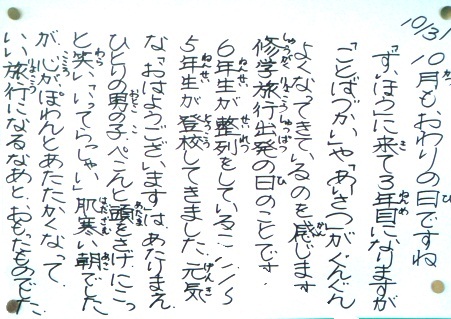 10/31
10月も、おわりの日ですね
「ずいほう」に来て3年目になりますが
「ことばづかい」や「あいさつ」がぐんぐん
よくなってきているのを感じます
修学旅行出発の日のことです。
6年生が整列をしているところへ
5年生が登校してきました、元気
な「おはようございます」は、あたりまえ
ひとりの男の子、ぺこんと頭をさげ、にこっ
と笑い、「いってらっしゃい」肌寒い朝でした
が、心が、ぽわんとあたたかくなって
いい旅行になるなあと、おもったものでした。